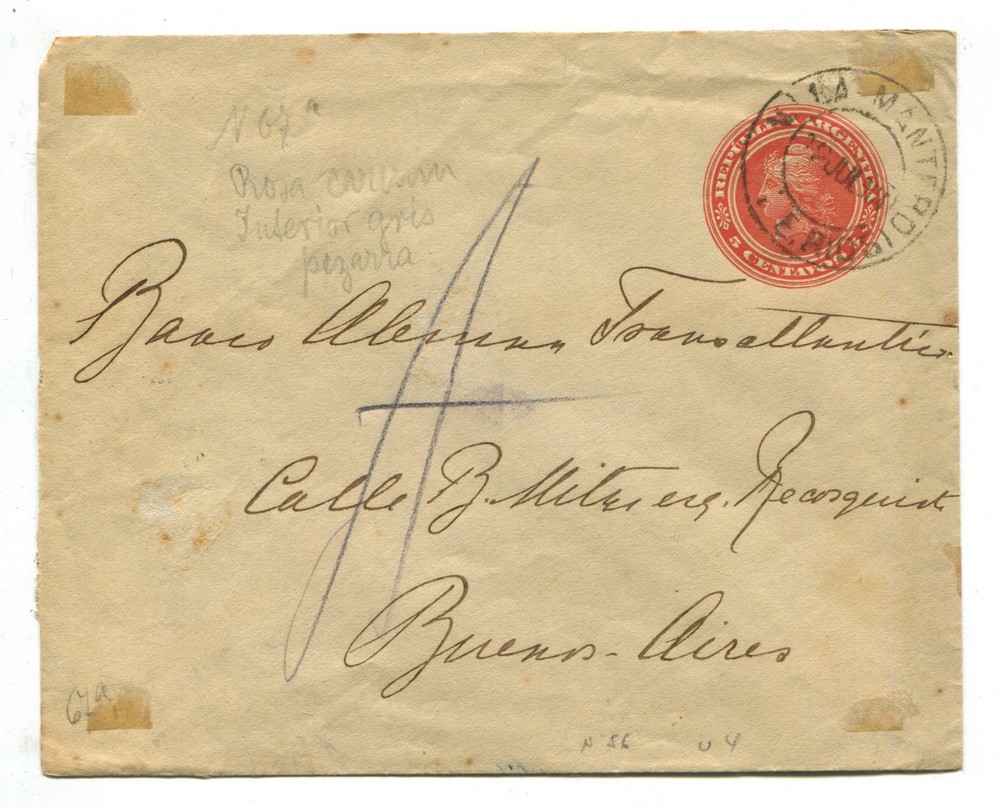 N 67 a
Rosa
Interior gris
pizarra
REPUBLICA ARGENTINA
5 CENTAVOS 5
LA MANTE
JUN
E. RIOS
A
Banco Aleman Transatlantico
Calle B. Mitre esq. Reconquista
Buenos-Aires
67a
U 4